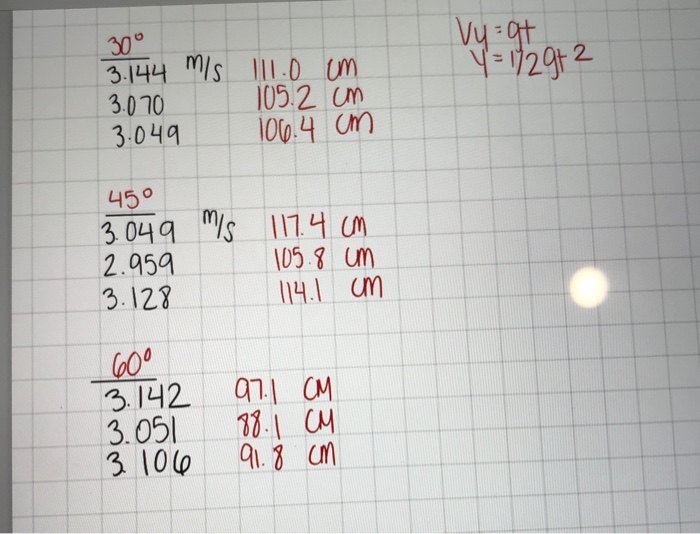 30°
3.144 m/s 111.0 cm
3.070 105.2 cm
3.049 106.4 cm
Vy = gt
y = 1/2gt2
45°
3.049 m/s 117.4 cm
2.959 105.8 cm
3.128 114.1 cm
60°
3.142 97.1 CM
3.051 88.1 CM
3.106 91.8 CM